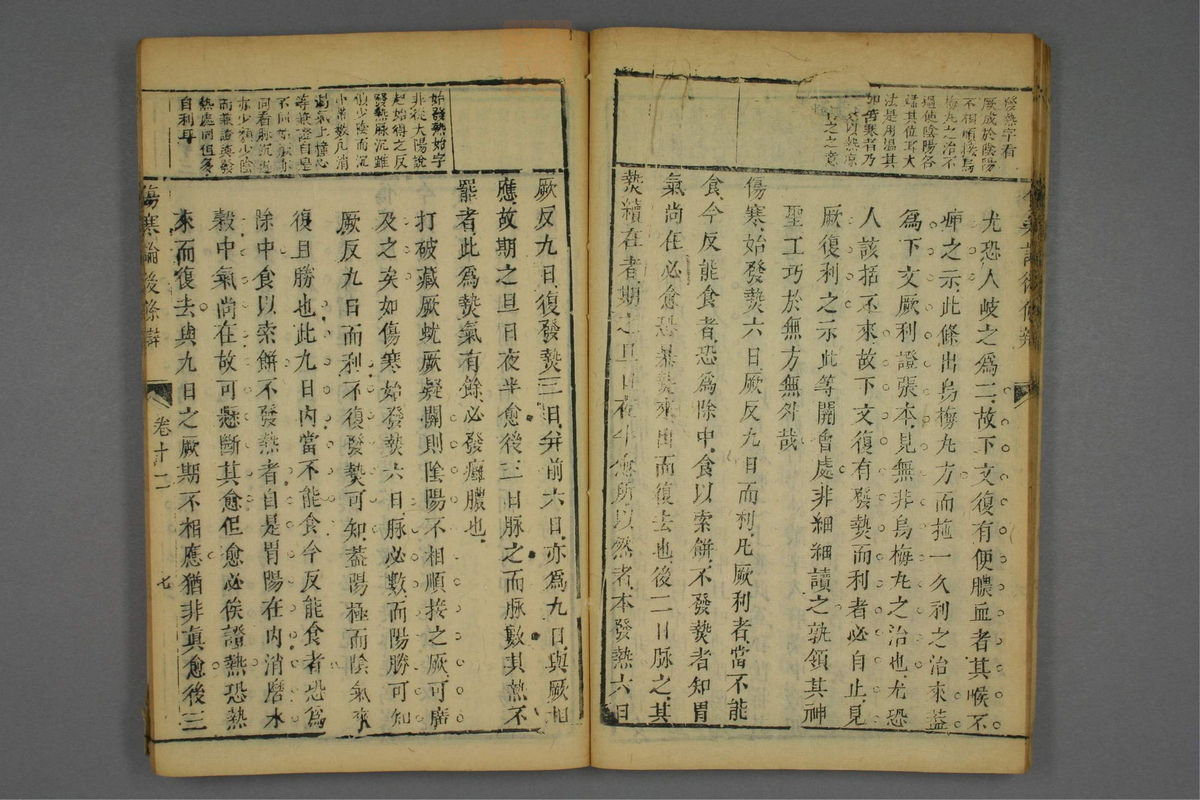 發熱字看
厥成於陰陽
不相順接烏
梅丸之治不
過使陰陽各
歸其位耳大
法是用溫其
加苦寒者乃
之之意
尤恐人岐之為二故下文復有便膿血者其喉不
痺之示此條出烏梅丸方而拖一久利之治來葢
為下文厥利證張本見無非烏梅丸之治也尤恐
人該括不來故下文復有發熱而利者必自止見
厥復利之示此等開會處非細細讀之孰領其神
聖工巧於無方無外哉
傷寒始發熱六日厥反九日而利凡厥利者當不能
食今反能食者恐為除中食以索餅不發熱者知胃
氣尚在必愈恐暴熱來出而復去也後三日脉之其
熱續在者期之旦日夜半愈所以然者本發熱六日
厥反九日復發熱三日并前六日亦為九日與厥相
應故期之旦日夜半愈後三日脉之而脉數其熱不
罷者此為熱氣有餘必發癰膿也
打破藏厥蚘厥疑關則陰陽不相順接之厥可廣
及之矣如傷寒始發熱六日脉必數而陽勝可知
厥反九日而利不復發熱可知葢陽極而陰氣來
復且勝也此九日內當不能食今反能食者恐為
除中食以索餅不發熱者自是胃陽在內消磨水
穀中氣尚在故可懸斷其愈但愈必俟證熱恐熱
來而復去與九日之厥期不相應猶非眞愈後三
始發熱始字
非從太陽說
起始得之反
發熱脉沉雖
似少陰而沉
中帶數凡消
渴氣上撞心
等兼證自是
不同
同看脉沉遲
亦少類少陰
而兼證與發
熱處同但多
自利耳
傷寒論後條辯
卷十一
七